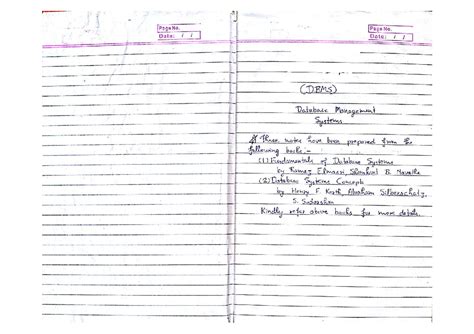 Page No.
Date: / /
Page No.
Date: / /
(DBMS)
Database Management
Systems
# These notes have been prepared from the
following books:-
(1) Fundamentals of Database Systems
by Ramez Elmasri, Shamkant B. Navathe
(2) Database Systems Concepts
by Henry F. Korth, Abraham Silberschatz,
S. Sudarshan
Kindly refer above books for more details.